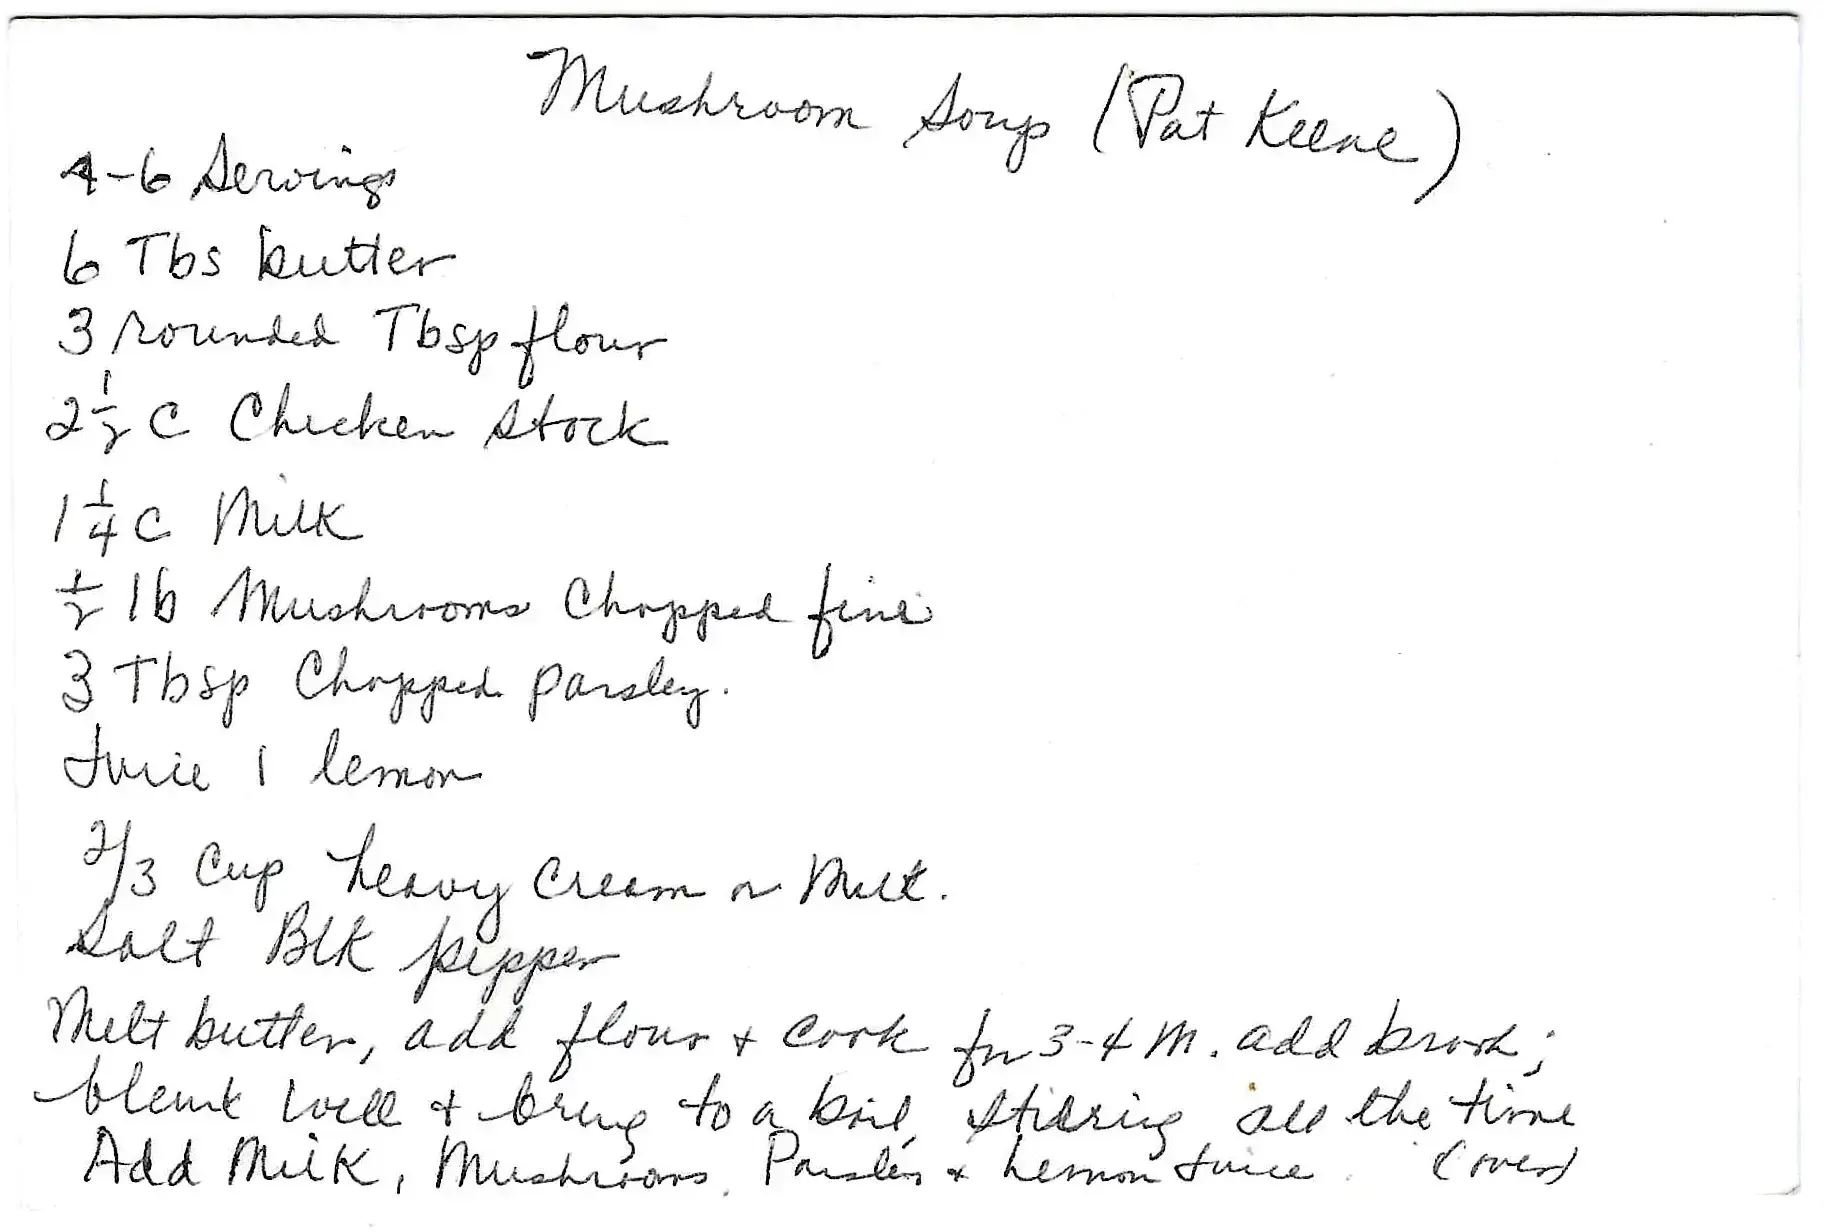 Mushroom Soup (Pat Keene)
4-6 Servings
6 Tbs butter
3 rounded Tbsp flour
2 1/2 C Chicken Stock
1 1/4 C Milk
1/2 lb Mushrooms Chopped fine
3 Tbsp Chopped parsley.
Juice 1 lemon
2/3 Cup heavy Cream or Milk.
Salt Blk pepper
Melt butter, add flour + cook for 3-4 M. add broth;
blend well + bring to a boil, stirring all the time
Add Milk, Mushrooms, Parsley + Lemon Juice. (over)